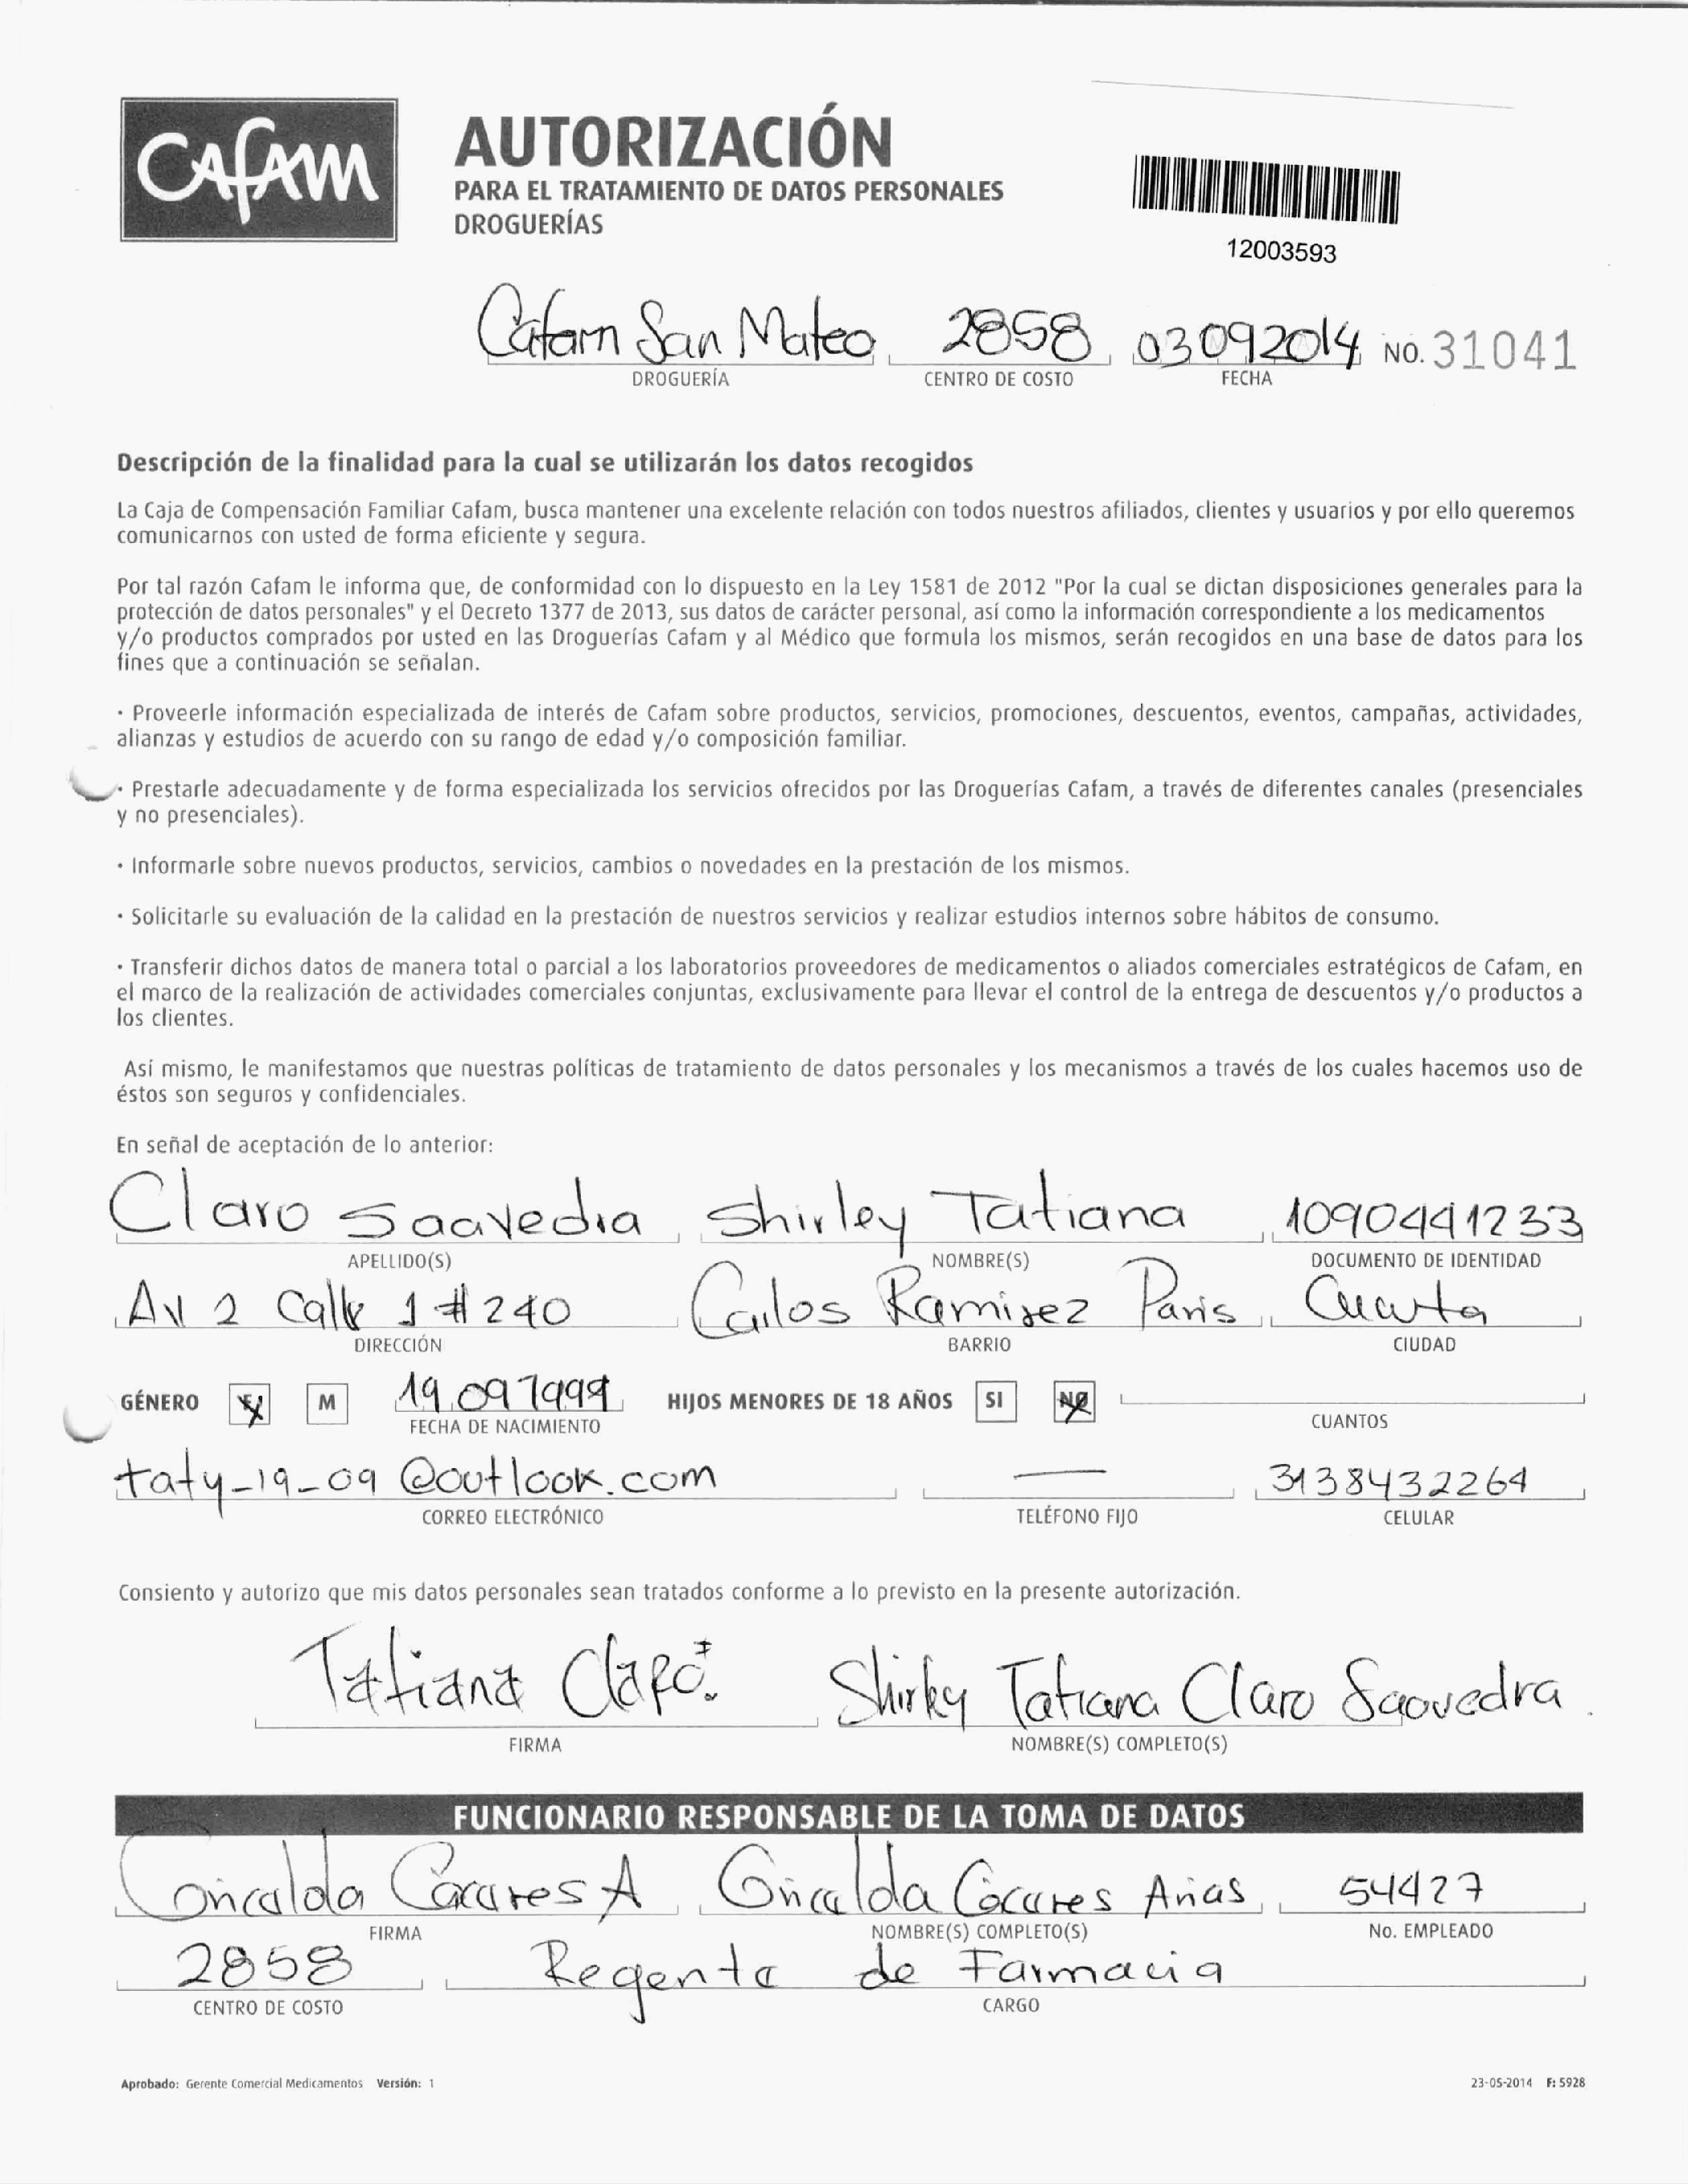 CAFAM
AUTORIZACIÓN
PARA EL TRATAMIENTO DE DATOS PERSONALES
DROGUERÍAS
12003593
Cafam San Mateo 2858 03092014 NO. 31041
DROGUERÍA CENTRO DE COSTO FECHA
Descripción de la finalidad para la cual se utilizarán los datos recogidos
La Caja de Compensación Familiar Cafam, busca mantener una excelente relación con todos nuestros afiliados, clientes y usuarios y por ello queremos
comunicarnos con usted de forma eficiente y segura.
Por tal razón Cafam le informa que, de conformidad con lo dispuesto en la Ley 1581 de 2012 "Por la cual se dictan disposiciones generales para la
protección de datos personales" y el Decreto 1377 de 2013, sus datos de carácter personal, así como la información correspondiente a los medicamentos
y/o productos comprados por usted en las Droguerías Cafam y al Médico que formula los mismos, serán recogidos en una base de datos para los
fines que a continuación se señalan.
· Proveerle información especializada de interés de Cafam sobre productos, servicios, promociones, descuentos, eventos, campañas, actividades,
alianzas y estudios de acuerdo con su rango de edad y/o composición familiar.
· Prestarle adecuadamente y de forma especializada los servicios ofrecidos por las Droguerías Cafam, a través de diferentes canales (presenciales
y no presenciales).
· Informarle sobre nuevos productos, servicios, cambios o novedades en la prestación de los mismos.
· Solicitarle su evaluación de la calidad en la prestación de nuestros servicios y realizar estudios internos sobre hábitos de consumo.
· Transferir dichos datos de manera total o parcial a los laboratorios proveedores de medicamentos o aliados comerciales estratégicos de Cafam, en
el marco de la realización de actividades comerciales conjuntas, exclusivamente para llevar el control de la entrega de descuentos y/o productos a
los clientes.
Así mismo, le manifestamos que nuestras políticas de tratamiento de datos personales y los mecanismos a través de los cuales hacemos uso de
éstos son seguros y confidenciales.
En señal de aceptación de lo anterior:
Claro Saavedra Shirley Tatiana 1090441233
APELLIDO(S) NOMBRE(S) DOCUMENTO DE IDENTIDAD
Av 2 Calle 1 # 240 Carlos Ramirez Paris
DIRECCIÓN BARRIO CIUDAD
GÉNERO F M 19 09 1999 HIJOS MENORES DE 18 AÑOS SI NO
FECHA DE NACIMIENTO CUANTOS
taty-19-09 @outlook.com — 3138432264
CORREO ELECTRÓNICO TELÉFONO FIJO CELULAR
Consiento y autorizo que mis datos personales sean tratados conforme a lo previsto en la presente autorización.
Tatiana Claro. Shirley Tatiana Claro Saavedra.
FIRMA NOMBRE(S) COMPLETO(S)
FUNCIONARIO RESPONSABLE DE LA TOMA DE DATOS
A Arias 54427
FIRMA NOMBRE(S) COMPLETO(S) No. EMPLEADO
2858 Regente de Farmacia
CENTRO DE COSTO CARGO
Aprobado: Gerente Comercial Medicamentos Versión: 1 23-05-2014 F: 5928